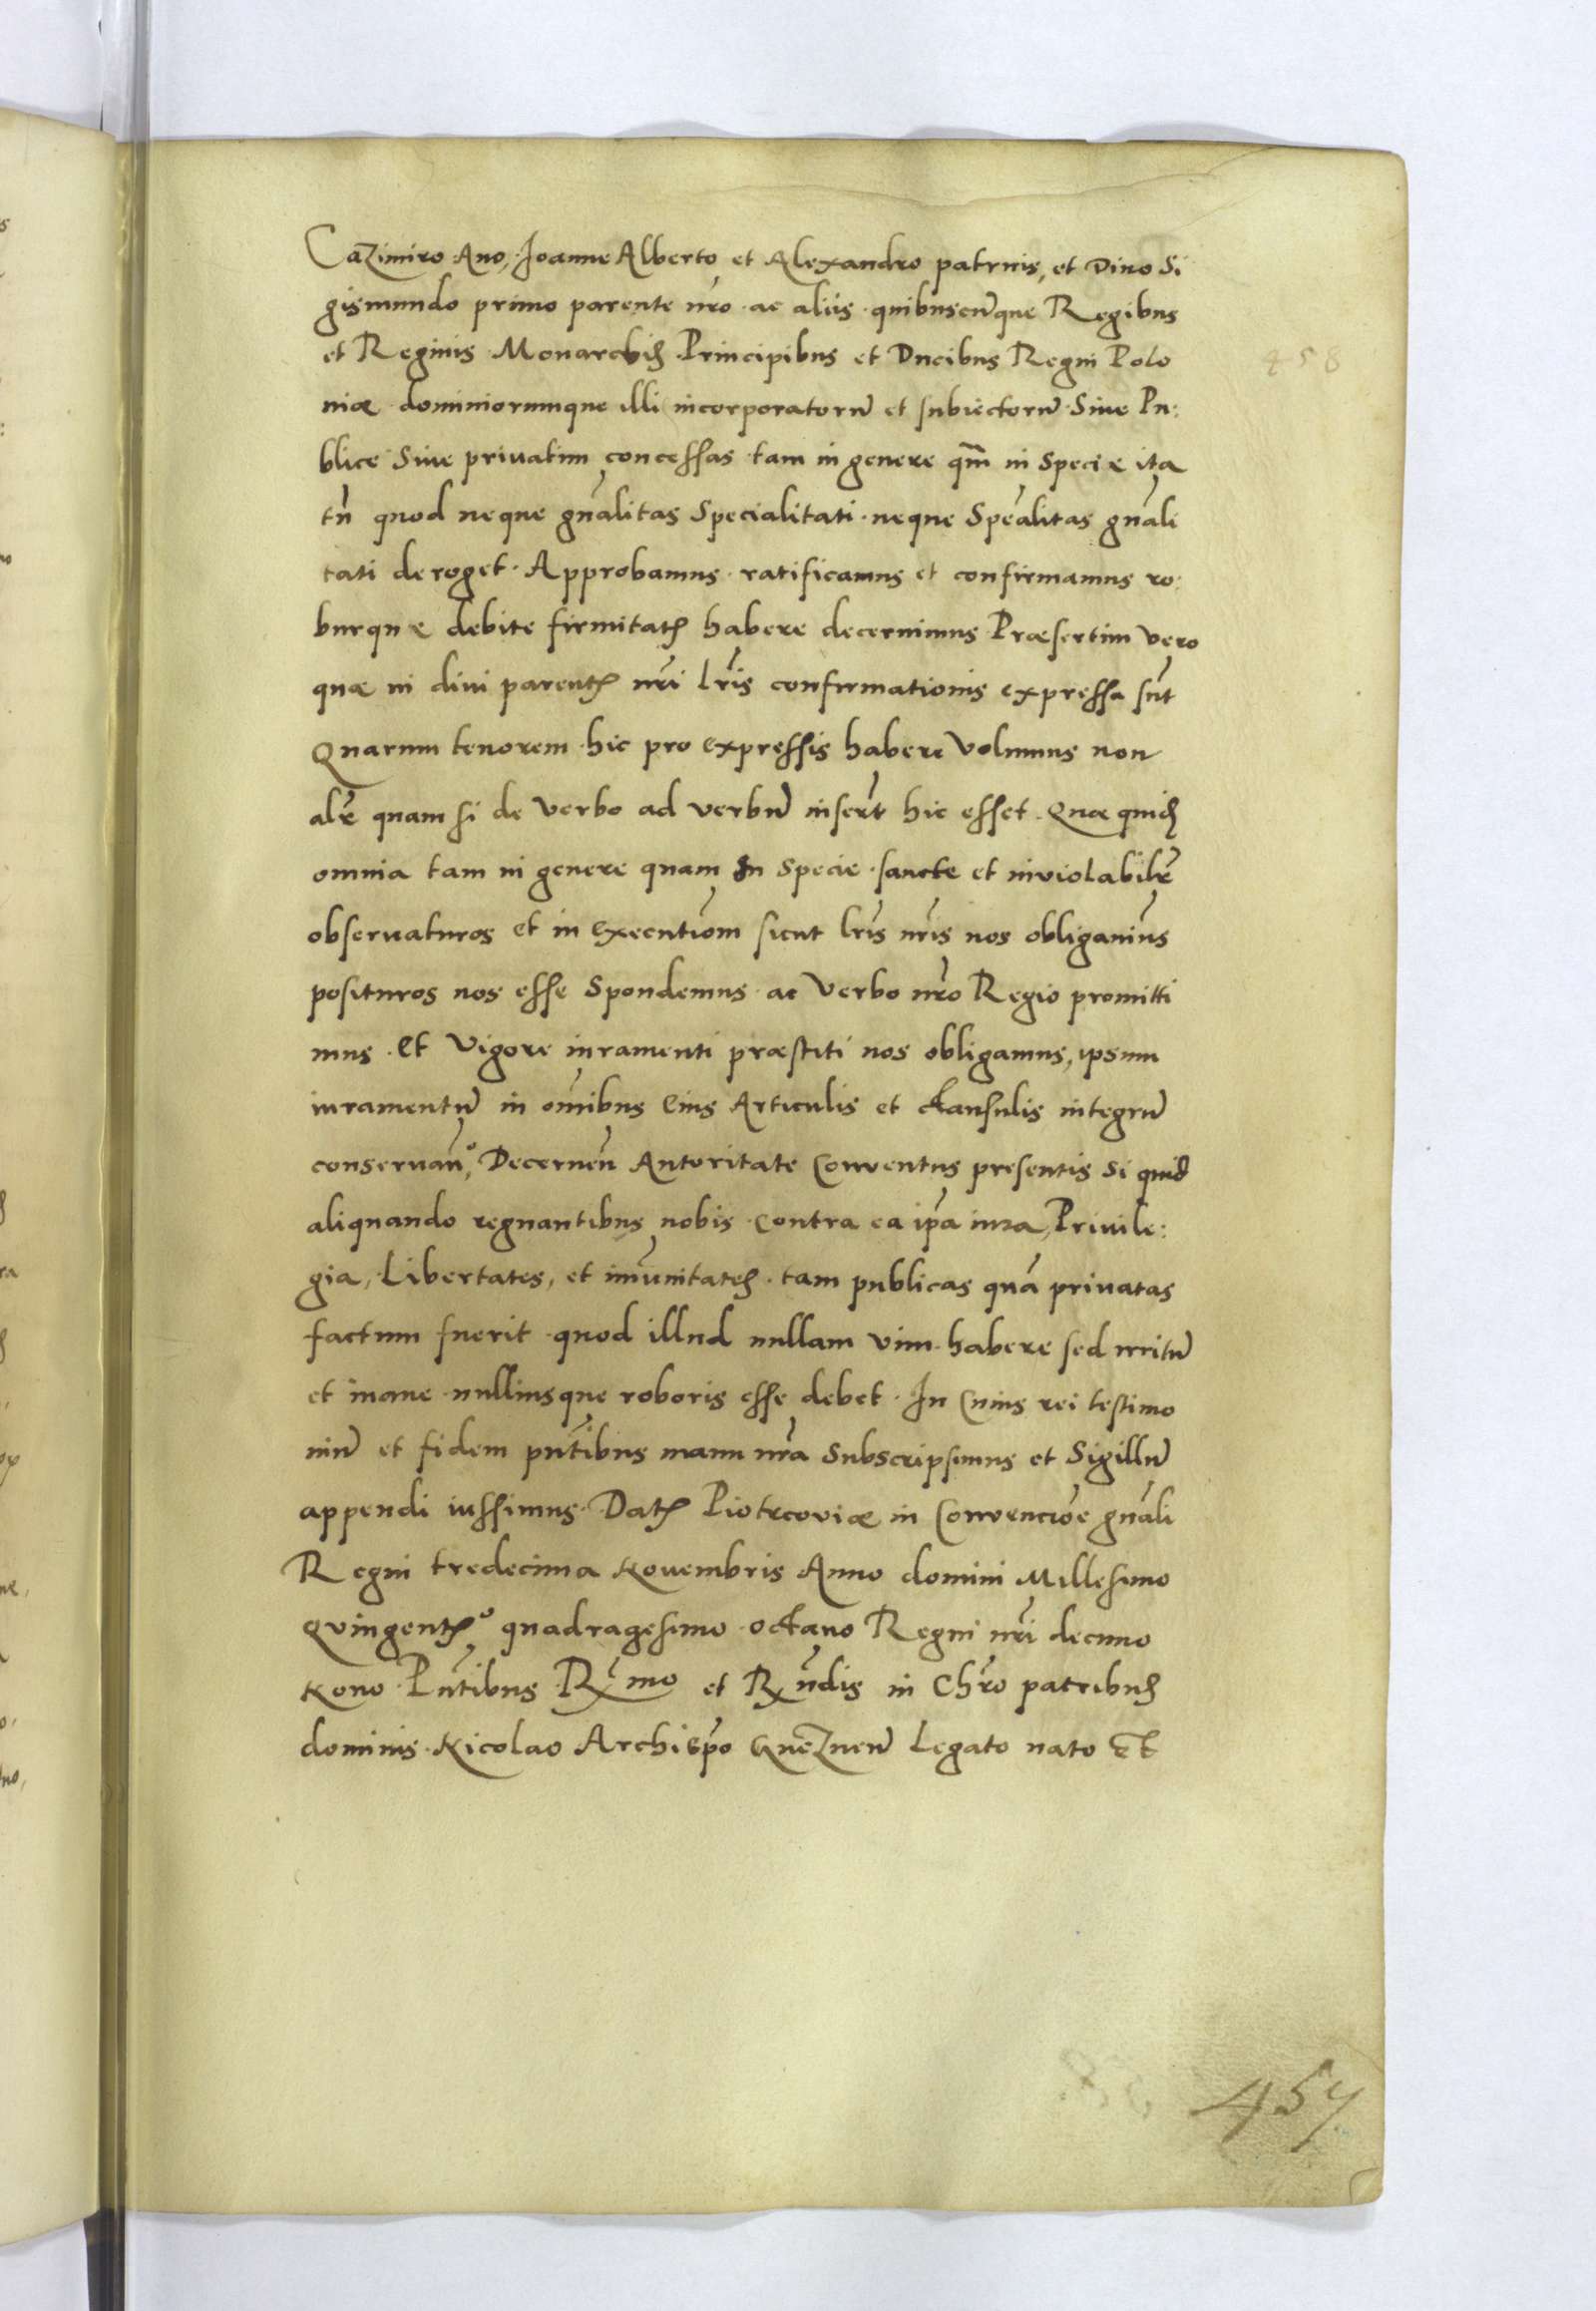 Cazimiro Auo, Joanne Alberto et Alexandro patruis, et Diuo Si
gismundo primo parente nr̃o ac aliis quibuscũque Regibus
et Reginis Monarchis Principibus et Ducibus Regni Polo
niæ dominiorumque illi incorporatorũ et subiectorũ Siue Pu:
blice Siue priuatim concessas tam in genere qm̃ in Specie ita
tñ quod neque gñalitas Specialitati neque Spẽalitas gñali
tati deroget. Approbamus ratificamus et confirmamus ro:
burque debite firmitatꝭ habere decernimus Præsertim vero
quæ in diui parentꝭ nr̃i lr̃is confirmationis expressa sũt
Quarum tenorem hic pro expressis habere volumus non
alr̃ quam si de verbo ad verbũ insert̃ hic esset. Quæ quidẽ
omnia tam in genere quam In specie sancte et inviolabilr̃
observaturos et in executiõm sicut lr̃is nr̃is nos obligauim̃s
posituros nos esse Spondemus ac Verbo nr̃o Regio promitti
mus. Et Vigore iuramenti præstiti nos obligamus, ipsum
iuramentũ in om̃ibus Eius Articulis et clausulis integrũ
conseruañ.º Decerneñ Autoritate Conventus presentis Si quid
aliquando regnantibus nobis contra ea ip̃a iura, Priuile:
gia, Libertates, et im̃unitates tam publicas quã priuatas
factum fuerit quod illud nullam vim habere sed irritũ
et inane nulliusque roboris esse debet. In Cuius rei testimo
niũ et fidem pñtibus manu nr̃a Subscripsimus et Sigillũ
appendi iussimus. Datꝭ Piotrcoviæ in Convenciõe gñali
Regni tredecima Novembris Anno domini Millesimo
Quingentꝭº quadragesimo octauo Regni nr̃i decimo
Nono Pñtibus Rx̃mo et Rx̃ñdis in Chr̃o patribus
dominis Nicolao Archiep̃o Gneznen̄ Legato nato Et
458
457